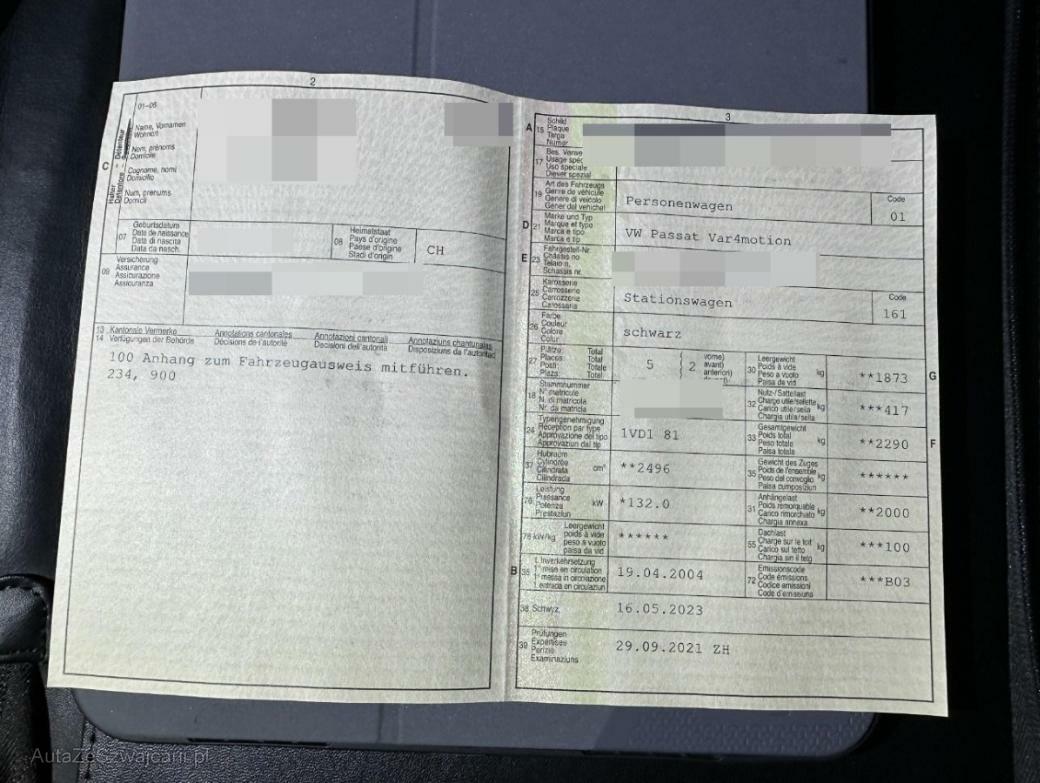 2
01-06
Name, Vornamen
Wohnort
Nom, prénoms
Domicile
Cognome, nomi
Domicilio
Num, prenums
Domicil
C
07
Geburtsdatum
Date de naissance
Data di nascita
Data da nasch.
08
Heimatstaat
Pays d'origine
Paese d'origine
Stadi d'origin
CH
09
Versicherung
Assurance
Assicurazione
Assicuranza
13 Kantonale Vermerke
14 Verfügungen der Behörde
Annotations cantonales
Décisions de l'autorité
Annotazioni cantonali
Decisioni dell'autorità
Annotaziuns chantunalas
Disposiziuns da l'autoritad
100 Anhang zum Fahrzeugausweis mitführen.
234, 900
3
A 15
Schild
Plaque
Targa
Numer
17
Bes. Verwe
Usage spéc
Uso speciale
Diever spezial
19
Art des Fahrzeugs
Genre de véhicule
Genere di veicolo
Gener dal vehichel
Personenwagen
Code
01
D 21
Marke und Typ
Marque et type
Marca e tipo
Marca e tip
VW Passat Var4motion
E 23
Fahrgestell-Nr.
Châssis no
Telaio n.
Schassis nr.
25
Karosserie
Carrosserie
Carrozzeria
Carossaria
Stationswagen
Code
161
26
Farbe
Couleur
Colore
Colur
schwarz
27
Plätze Total
Places Total
Posti Totale
Plazs Total
5
2
vorne)
avant)
anteriori)
30
Leergewicht
Poids à vide
Peso a vuoto
Paisa da vid
kg
**1873
G
18
Stammnummer
N° matricule
N. di matricola
Nr. da matricla
32
Nutz-/Sattellast
Charge utile/sellette
Carico utile/sella
Chargia utila/sella
kg
***417
24
Typengenehmigung
Réception par type
Approvazione del tipo
Approvaziun dal tip
1VD1 81
33
Gesamtgewicht
Poids total
Peso totale
Paisa totala
kg
**2290
F
37
Hubraum
Cylindrée
Cilindrata
Cilindrada
cm³
**2496
35
Gewicht des Zuges
Poids de l'ensemble
Peso del convoglio
Paisa cumposiziun
kg
******
76
Leistung
Puissance
Potenza
Prestaziun
kW
*132.0
31
Anhängelast
Poids remorquable
Carico rimorchiato
Chargia annexa
kg
**2000
78 kW/kg
Leergewicht
poids à vide
peso a vuoto
paisa da vid
******
55
Dachlast
Charge sur le toit
Carico sul tetto
Chargia sin il tetg
kg
***100
B 36
1. Inverkehrsetzung
1re mise en circulation
1a messa in circolazione
1. entrada en circulaziun
19.04.2004
72
Emissionscode
Code émissions
Codice emissioni
Code d'emissiuns
***B03
38 Schwyz,
16.05.2023
39
Prüfungen
Expertises
Perizie
Examinaziuns
29.09.2021 ZH
AutaZeSzwajcarii.pl